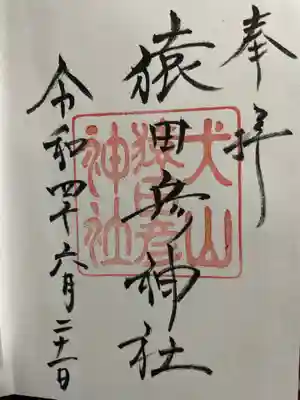 奉拝
犬山
猿田彦
神社
猿田彦神社
令和四年六月二十一日